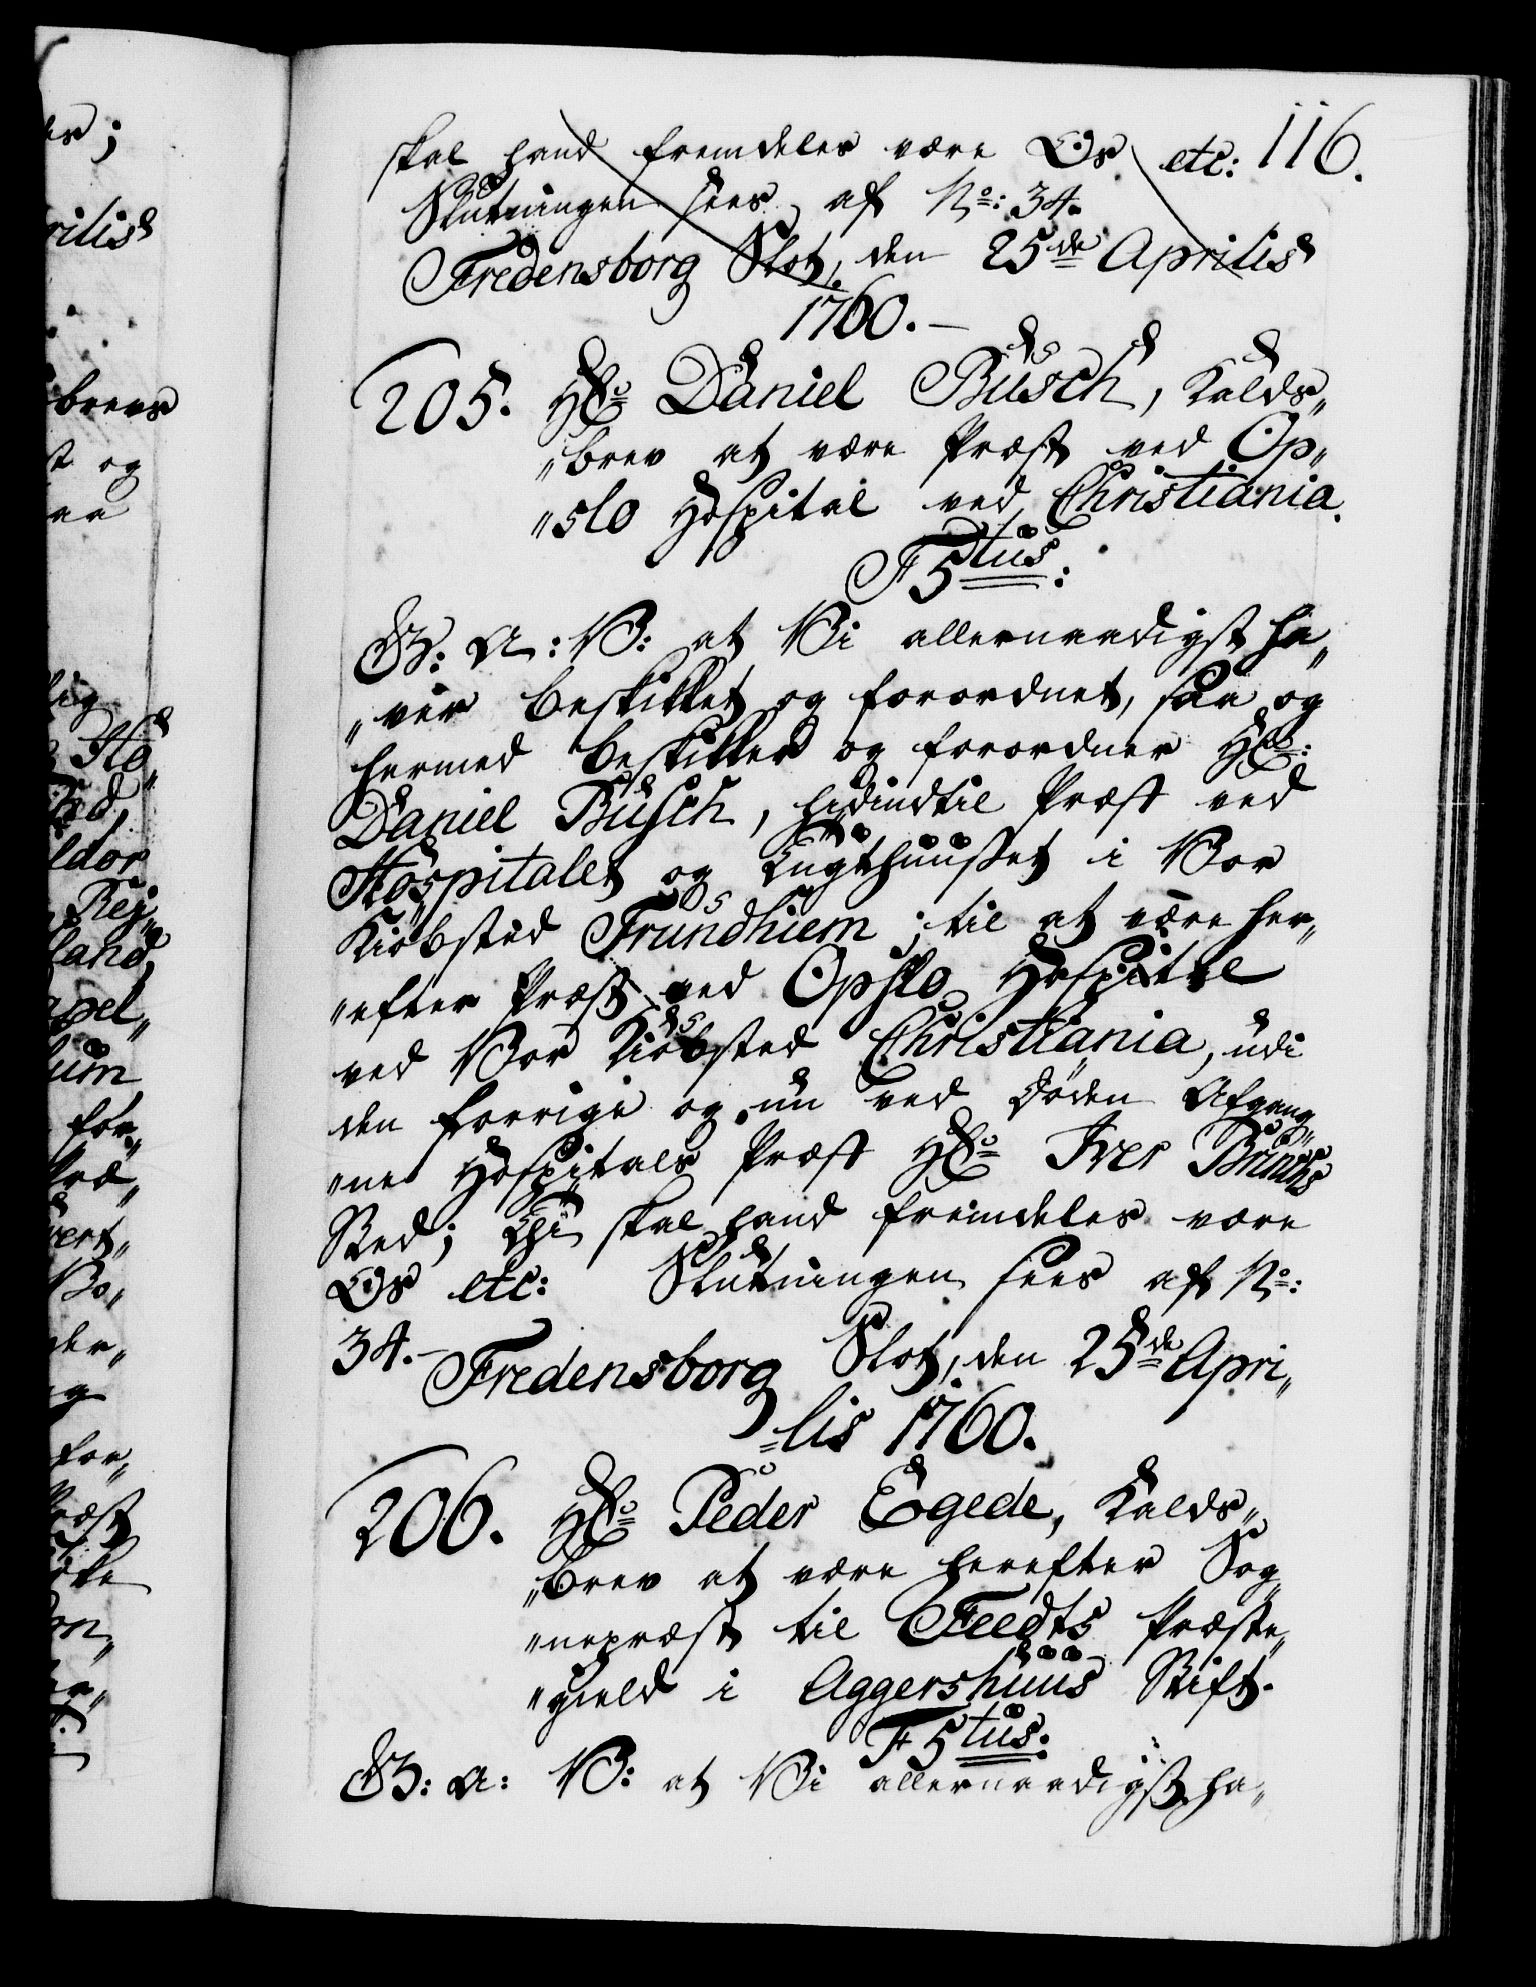 116.
skal hand fremdeles være Os etc:
Slutningen sees af No: 34.
Fredensborg Slot, den 25de Aprilis
1760.
205. Hr: Daniel Busch, Kalds„
„brev at være Præst ved Op„
„slo Hospital ved Christiania.
F 5tus:
G: A: V: at Vi allernaadigst ha„
„ver beskikket og forordnet, saa og
hermed beskikker og forordner Hr:
Daniel Busch, hidindtil Præst ved
Hospitalet og Tugthuuset i Vor
Kiøbsted Trundhiem; til at være her„
„efter Præst ved Opslo Hospital
ved Vor Kiøbsted Christiania, udi
den forrige og nu ved Døden Afgang„
„ne Hospitals Præst Hr: Iver Brinchs
Sted; Thi skal hand fremdeles være
Os etc: Slutningen sees af No:
34.- Fredensborg Slot, den 25de Apri„
„lis 1760.
206. Hr: Peder Egede, Kalds„
„brev at være herefter Sog„
„nepræst til Feedts Præste„
„gield i Aggershuus Stift.
F 5tus:
G: A: V: at Vi allernaadigst ha„